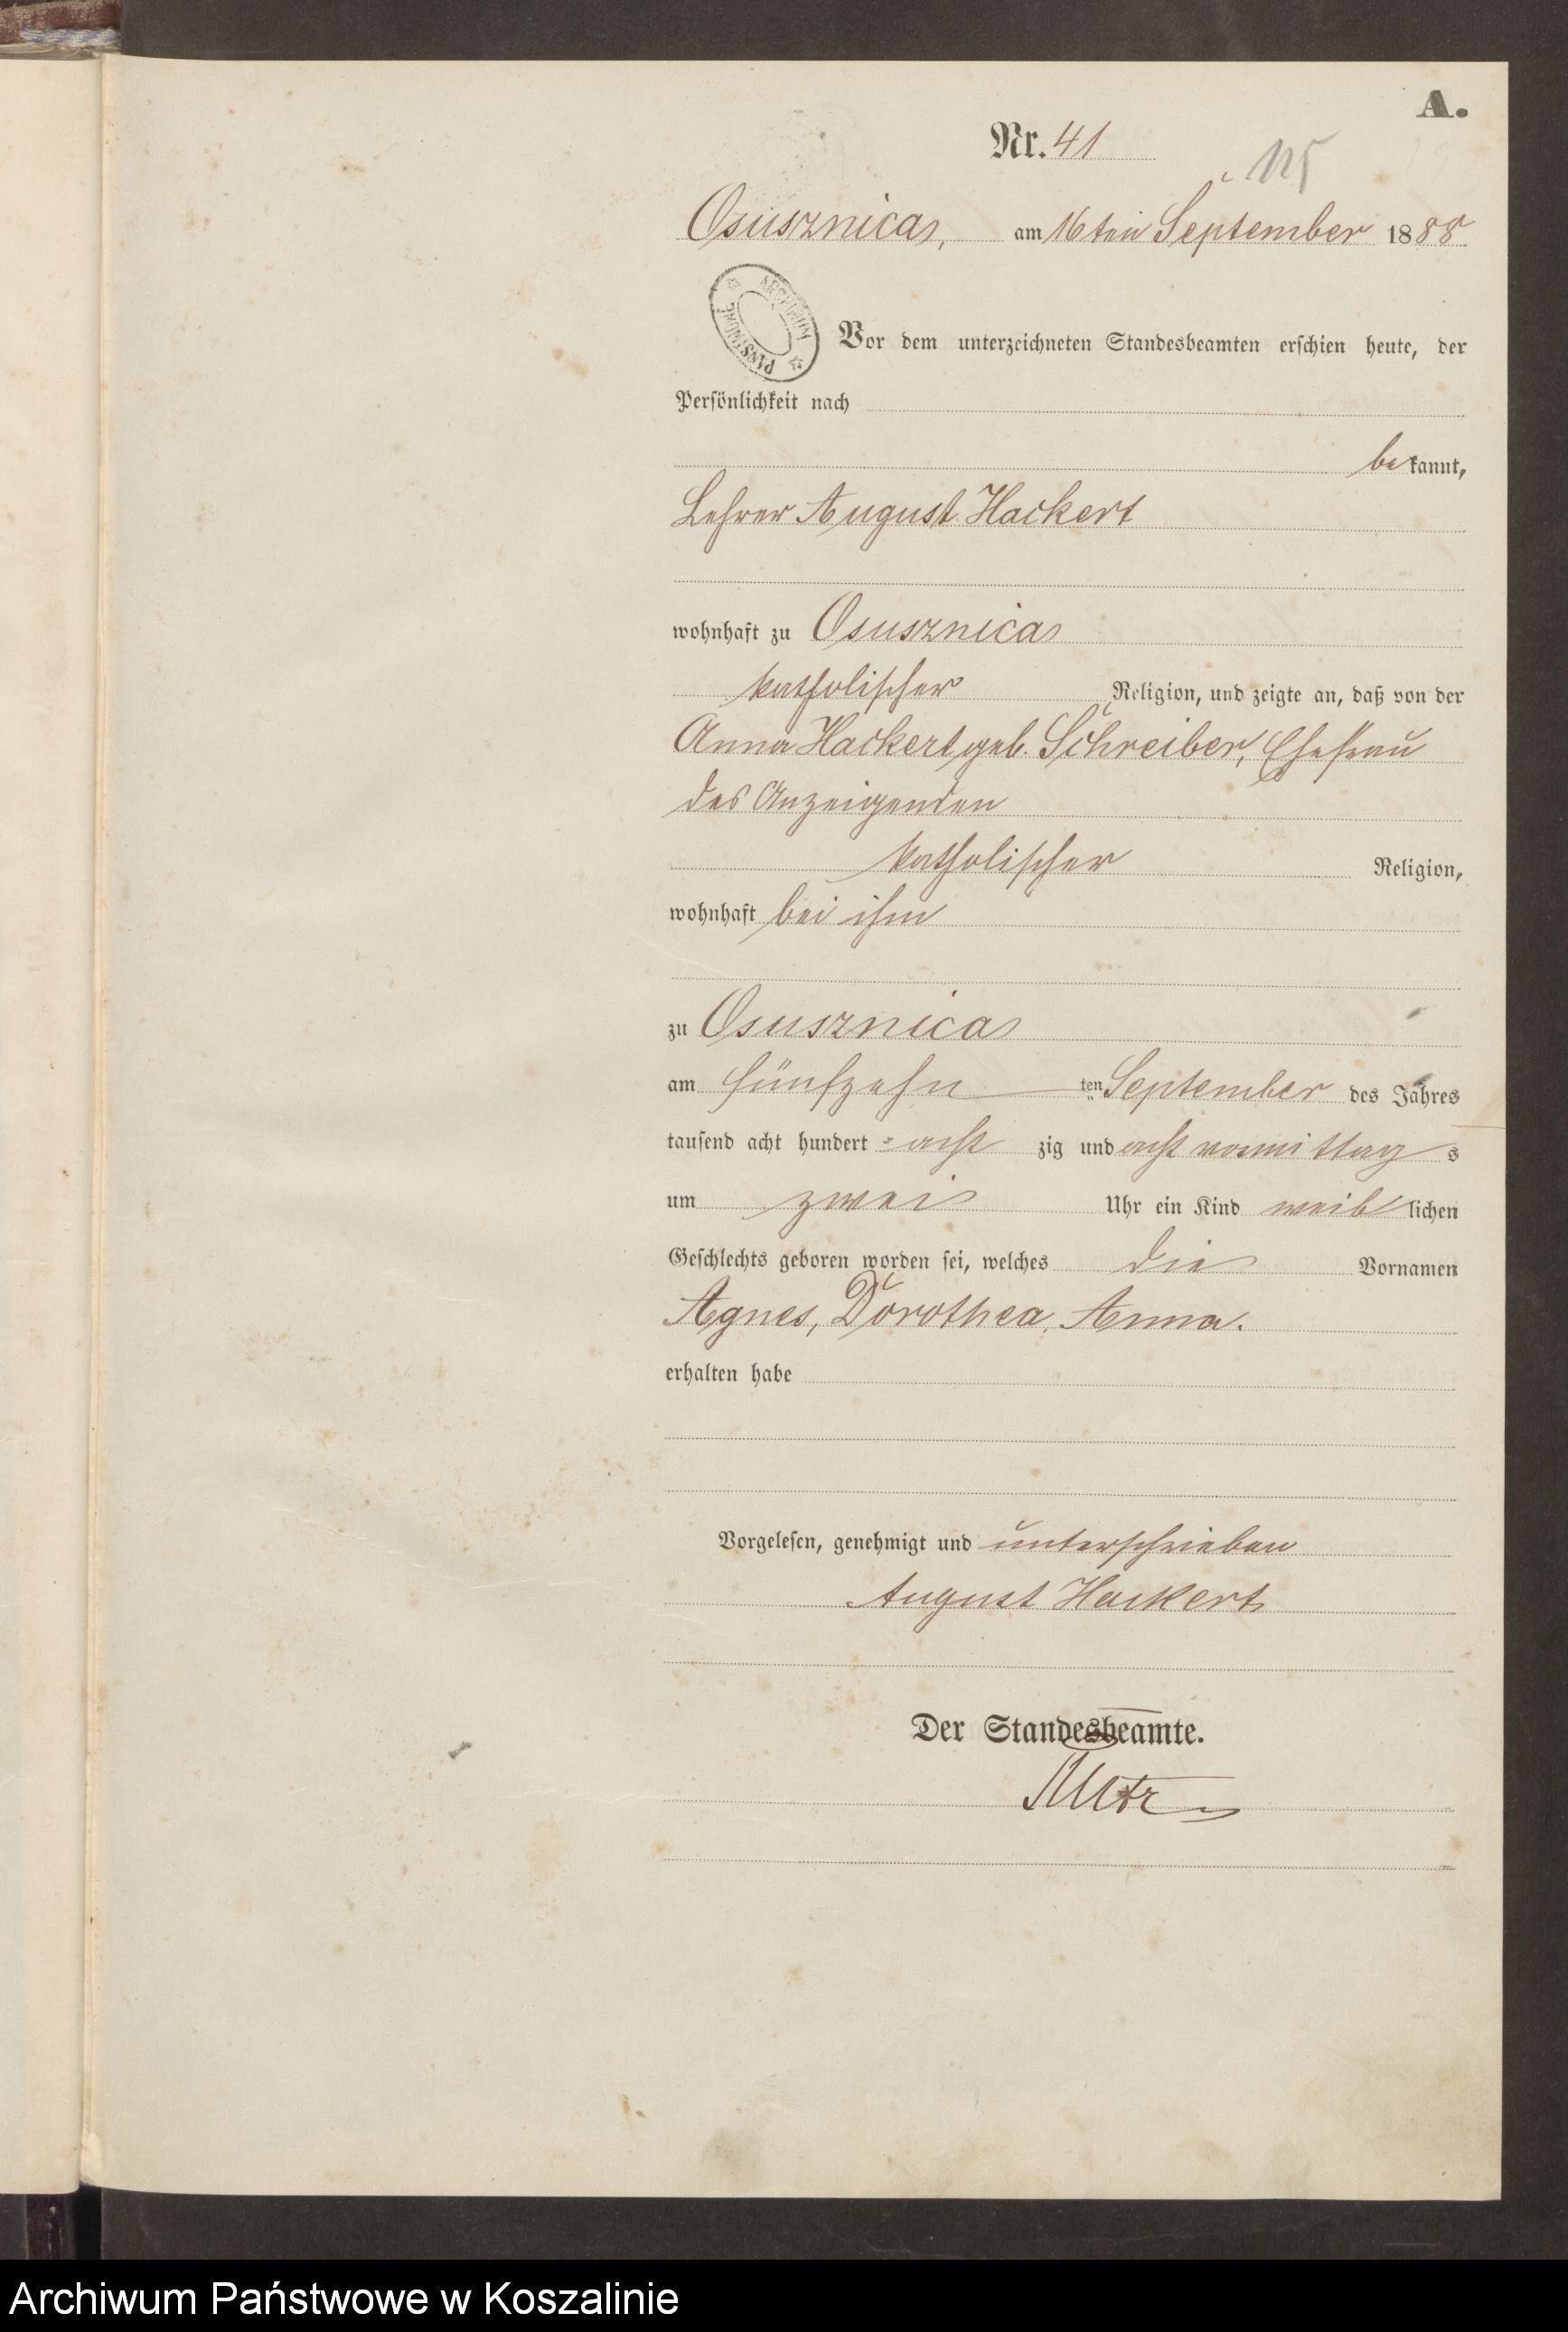 A.
Nr. 41
115
Osusznica, am 16ten September 1888
ARCHIWUM PAŃSTWOWE
Vor dem unterzeichneten Standesbeamten erschien heute, der
Persönlichkeit nach
bekannt,
Lehrer August Hackert
wohnhaft zu Osusznica
katholischer Religion, und zeigte an, daß von der
Anna Hackert geb. Schreiber, Ehefrau
des Anzeigenden
katholischer Religion,
wohnhaft bei ihm
zu Osusznica
am fünfzehn ten September des Jahres
tausend acht hundert acht zig und acht vormittags
um zwei Uhr ein Kind weiblichen
Geschlechts geboren worden sei, welches die Vornamen
Agnes, Dorothea, Anna.
erhalten habe
Vorgelesen, genehmigt und unterschrieben
August Hackert
Der Standesbeamte.
Archiwum Państwowe w Koszalinie